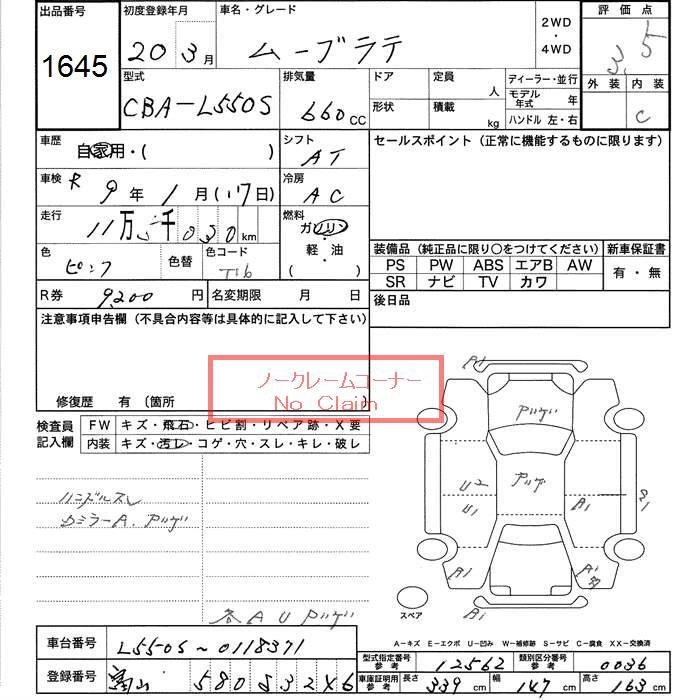 出品番号
1645
初度登録年月
20 3月
車名・グレード
ムーブラテ
2WD
・
4WD
評価点
3.5
外装 内装
C
型式
CBA-L550S
排気量
660cc
ドア
定員
人
ディーラー・並行
形状
積載
kg
モデル年式 年
ハンドル 左・右
車歴
自家用・( )
シフト
AT
セールスポイント(正常に機能するものに限ります)
車検 R 9年 1月(17日)
冷房
AC
走行
11万5千030km
燃料
ガソリン
・
軽・油
( )
色
ピンク
色替
色コード
T16
装備品(純正品に限り○をつけてください)
新車保証書
PS PW ABS エアB AW
SR ナビ TV カワ
有・無
R券 9,200円
名変期限 月 日
後日品
注意事項申告欄(不具合内容等は具体的に記入して下さい)
ノークレームコーナー
No Claim
修復歴 有 〔箇所
検査員
記入欄
FW キズ・飛石・ヒビ割・リペア跡・X要
内装 キズ・汚レ・コゲ・穴・スレ・キレ・破レ
ハンドルスレ
ミラーA. アリゲ
各AUアリゲ
A1
アリゲ
アリゲ
U2
U1
A1
A1
A1
スペア
A1
A-キズ E-エクボ U-凹み W-補修跡 S-サビ C-腐食 XX-交換済
車台番号 L550S~0118371
型式指定番号 参考 12562
類別区分番号 参考 0036
登録番号 富山 580 S32X6
車庫証明用 参考 長さ 339cm 幅 147cm 高さ 163cm